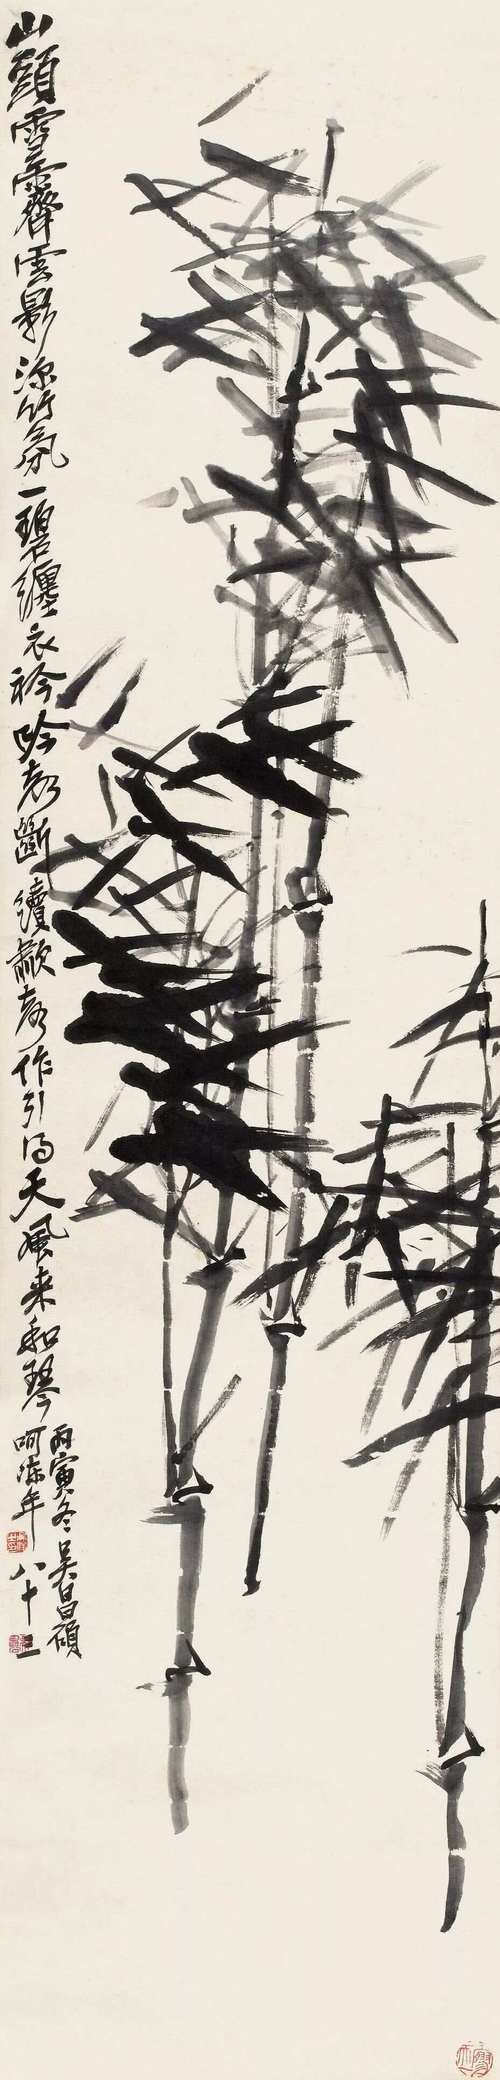 山頭雪霽雲影深竹氣一碧纏衣衿吟聲斷續歗聲作引得天風來和琴
丙寅冬吳昌碩
呵凍年八十三